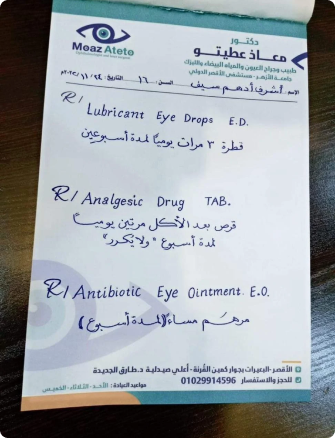 Moaz Ateto
دكتور
معاذ عطيتو
طبيب وجراح العيون والمياه البيضاء والليزك
جامعة الأزهر - مستشفى الأقصر الدولي
الاسم: أشرف أدهم سيف السن: ١٦ التاريخ: ٢٤ / ١١ /
R/ Lubricant Eye Drops E.D.
قطرة ٣ مرات يومياً لمدة أسبوعين
R/ Analgesic Drug TAB.
قرص بعد الأكل مرتين يومياً
لمدة أسبوع "ولا يكرر"
R/ Antibiotic Eye Ointment. E.O.
مرهم مساءً (لمدة أسبوع)
الأقصر - البعيرات بجوار كمين القرنة - أعلي صيدلية د. طارق الجديدة
للحجز والاستفسار 01029914596 مواعيد العيادة: الأحد - الثلاثاء - الخميس